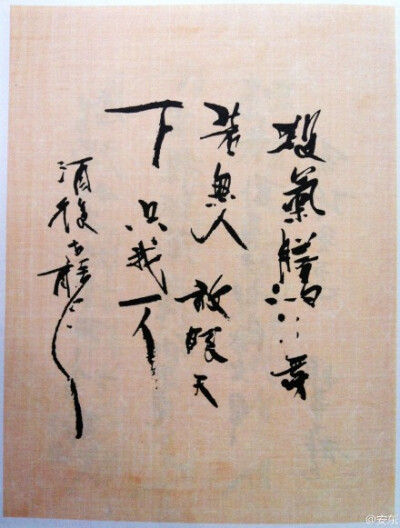 殺氣騰々旁
若無人 放眼天
下 只我一人
酒後古龍
@安东